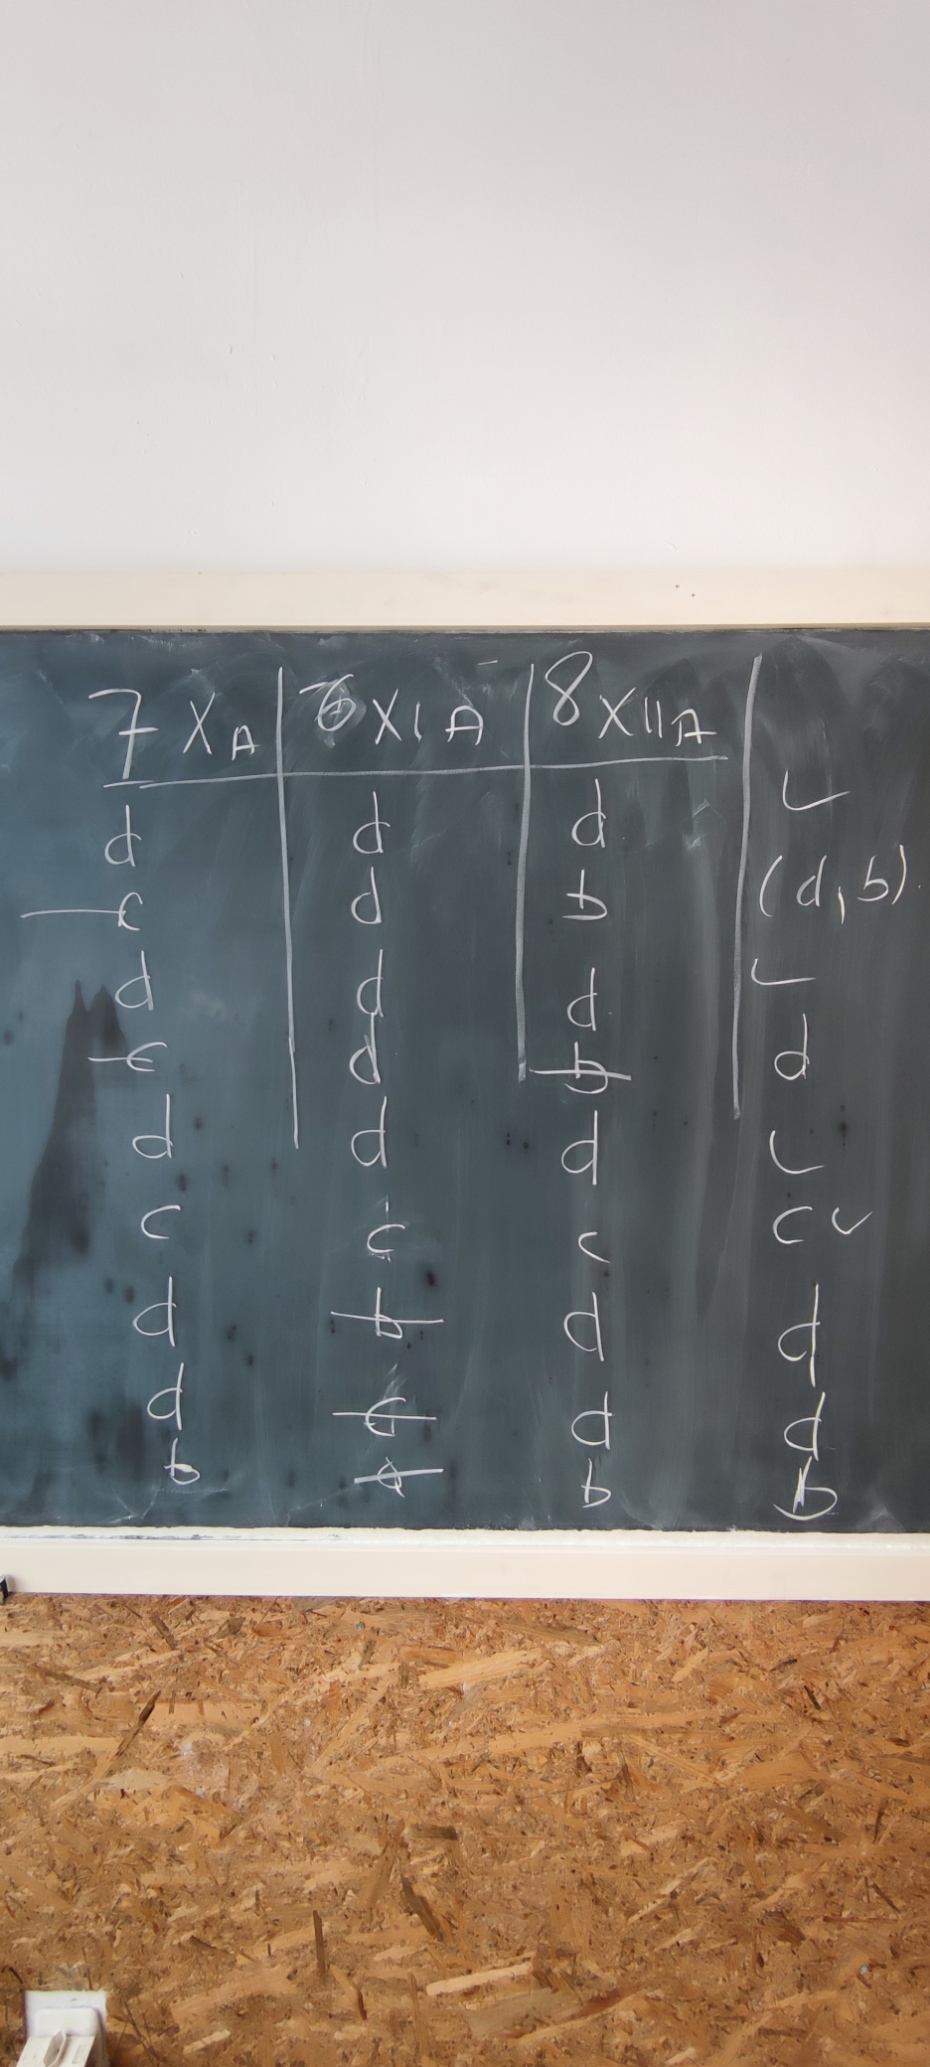 7 XA 6 XIA 8 XIIA
d d d ✓
c d b (d, b).
d d d ✓
c d b d
d d d ✓
c c c c ✓
d b d d
d c d d
b a b b